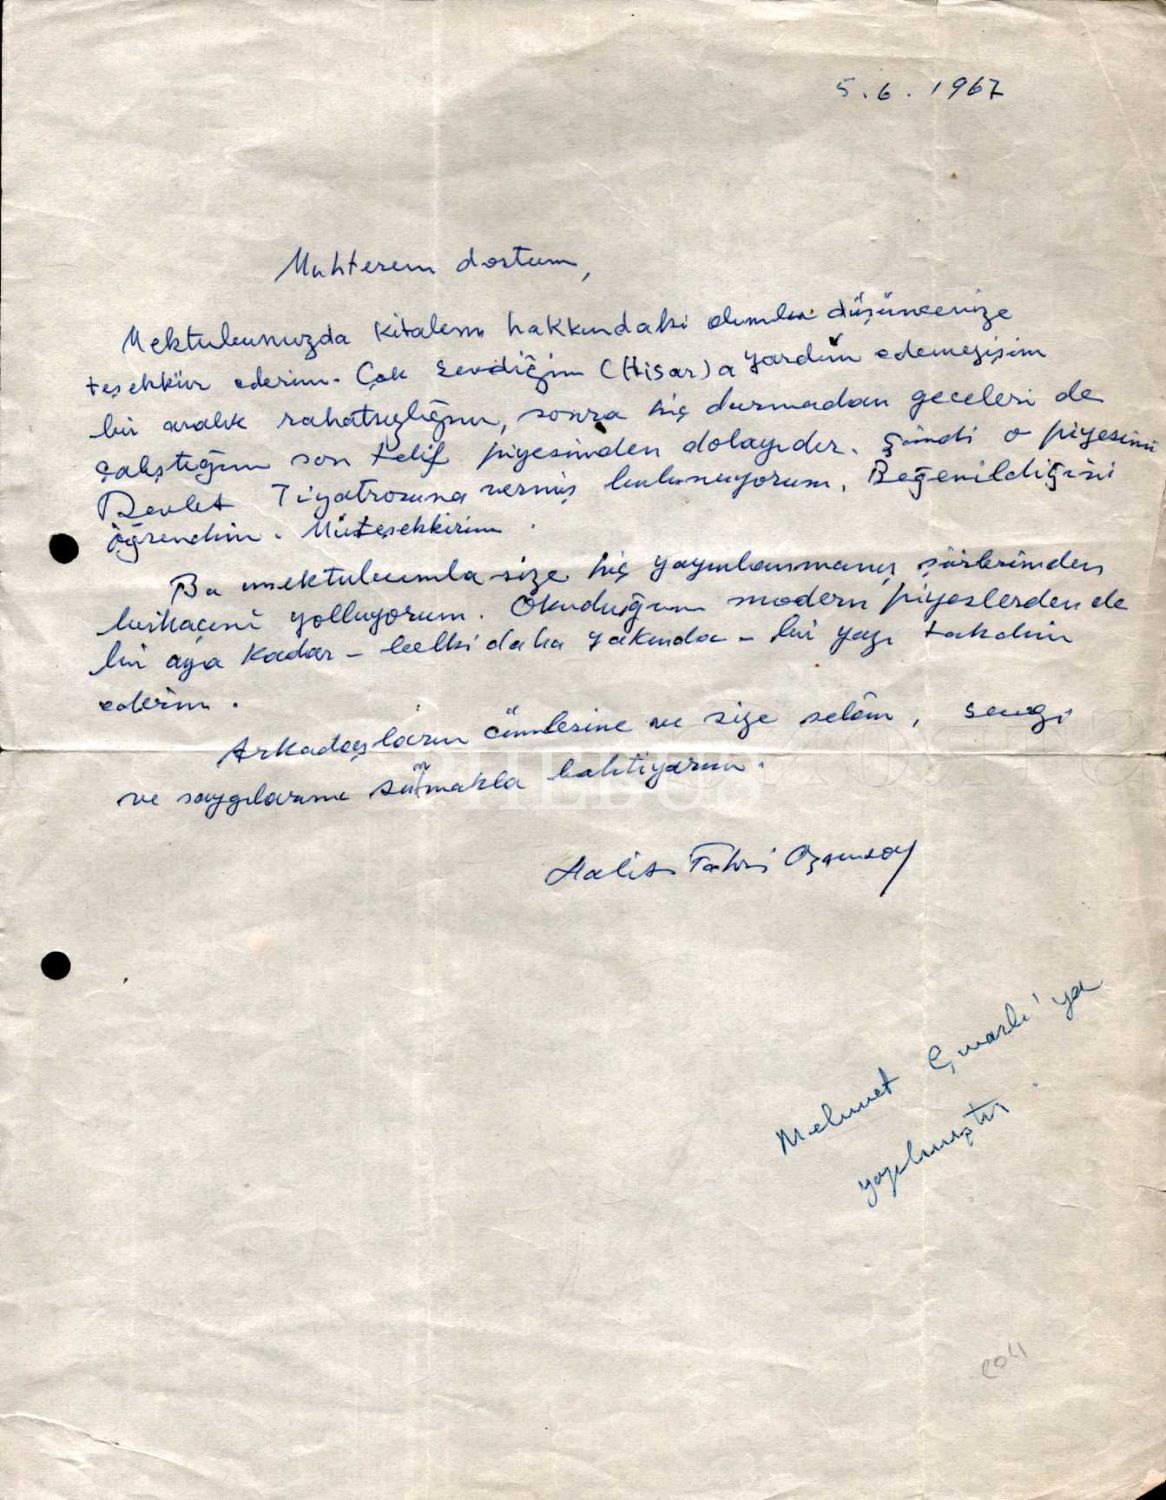 5.6.1967
Muhterem dostum,
Mektubunuzda kitabım hakkındaki olumlu düşüncenize
teşekkür ederim. Çok sevdiğim (Hisar)a yardım edemeyişim
bir aralık rahatsızlığım, sonra hiç durmadan geceleri de
çalıştığım son telif piyesimden dolayıdır. Şimdi o piyesimi
Devlet Tiyatrosuna vermiş bulunuyorum. Beğenildiğini
öğrendim. Müteşekkirim.
Bu mektubumla size hiç yayınlanmamış şiirlerimden
birkaçını yolluyorum. Okuduğum modern piyeslerden de
bir aya kadar - belki daha yakında - bir yazı takdim
ederim.
Arkadaşların cümlesine ve size selâm, sevgi
ve saygılarımı sunmakla bahtiyarım.
Halit Fahri Ozansoy
Mehmet Çınarlı'ya
yazılmıştır.
PHEBUS